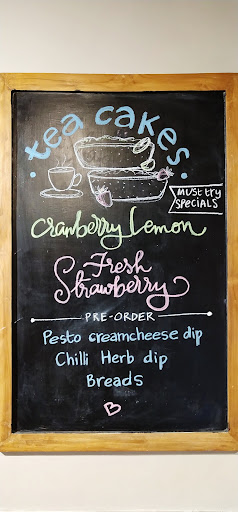 • tea cakes •
must try
SPECIALS
Cranberry Lemon
Fresh
Strawberry
PRE-ORDER
Pesto creamcheese dip
Chilli Herb dip
Breads
B